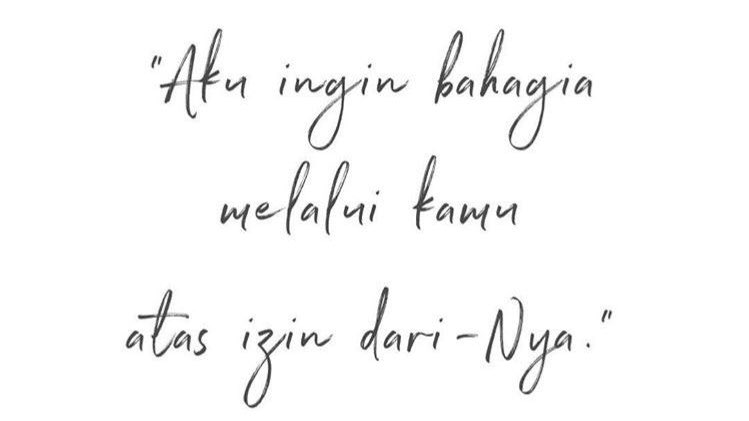 "Aku ingin bahagia
melalui kamu
atas izin dari-Nya."